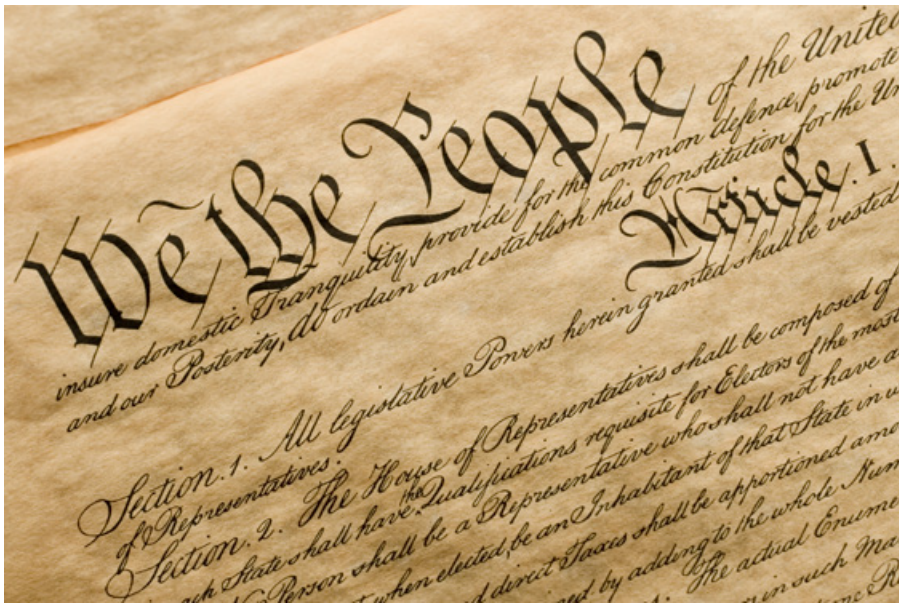 We the People of the United
insure domestic Tranquility, provide for the common defence, promote
and our Posterity, do ordain and establish this Constitution for the Un
Article. I.
Section. 1. All legislative Powers herein granted shall be vested
of Representatives.
Section. 2. The House of Representatives shall be composed of
ach State shall have the Qualifications requisite for Electors of the most
Person shall be a Representative who shall not have a
when elected, be an Inhabitant of that State in w
d direct Taxes shall be apportioned amo
ed by adding to the whole Num
The actual Enume
in such Ma